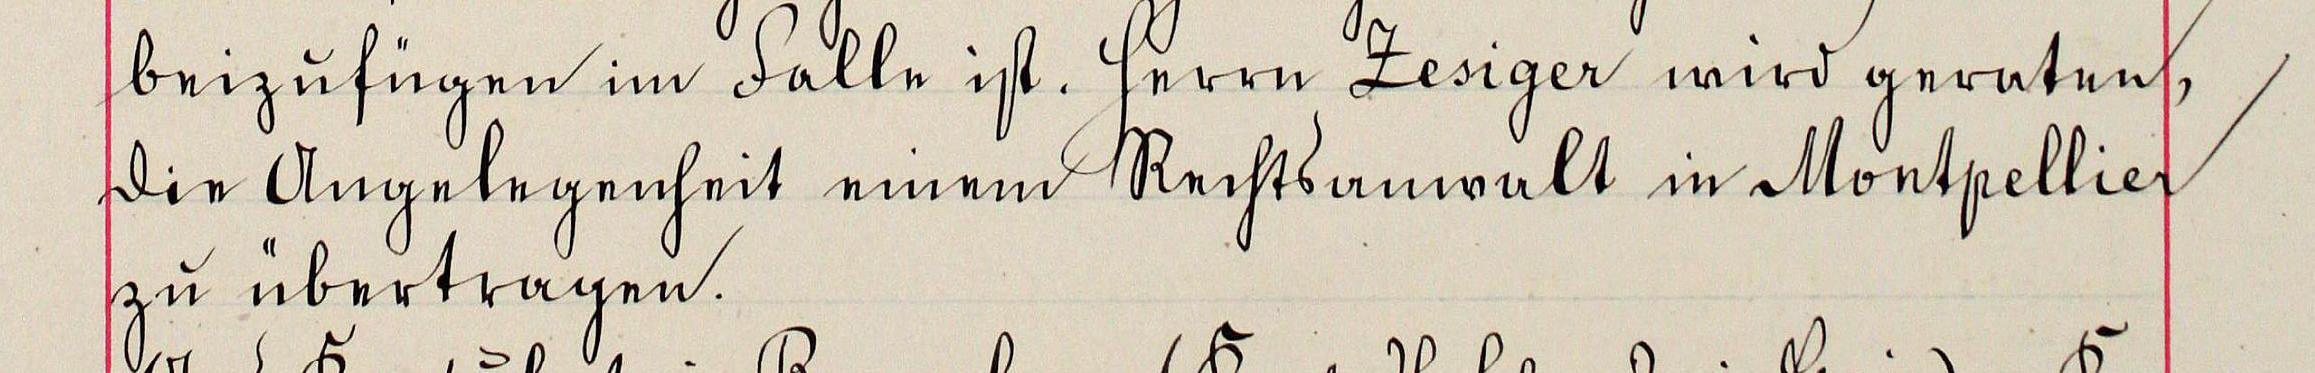 beizufügen im Falle ist. Herrn Zesiger wird geraten,
die Angelegenheit einem Rechtsanwalt in Montpellier
zu übertragen.